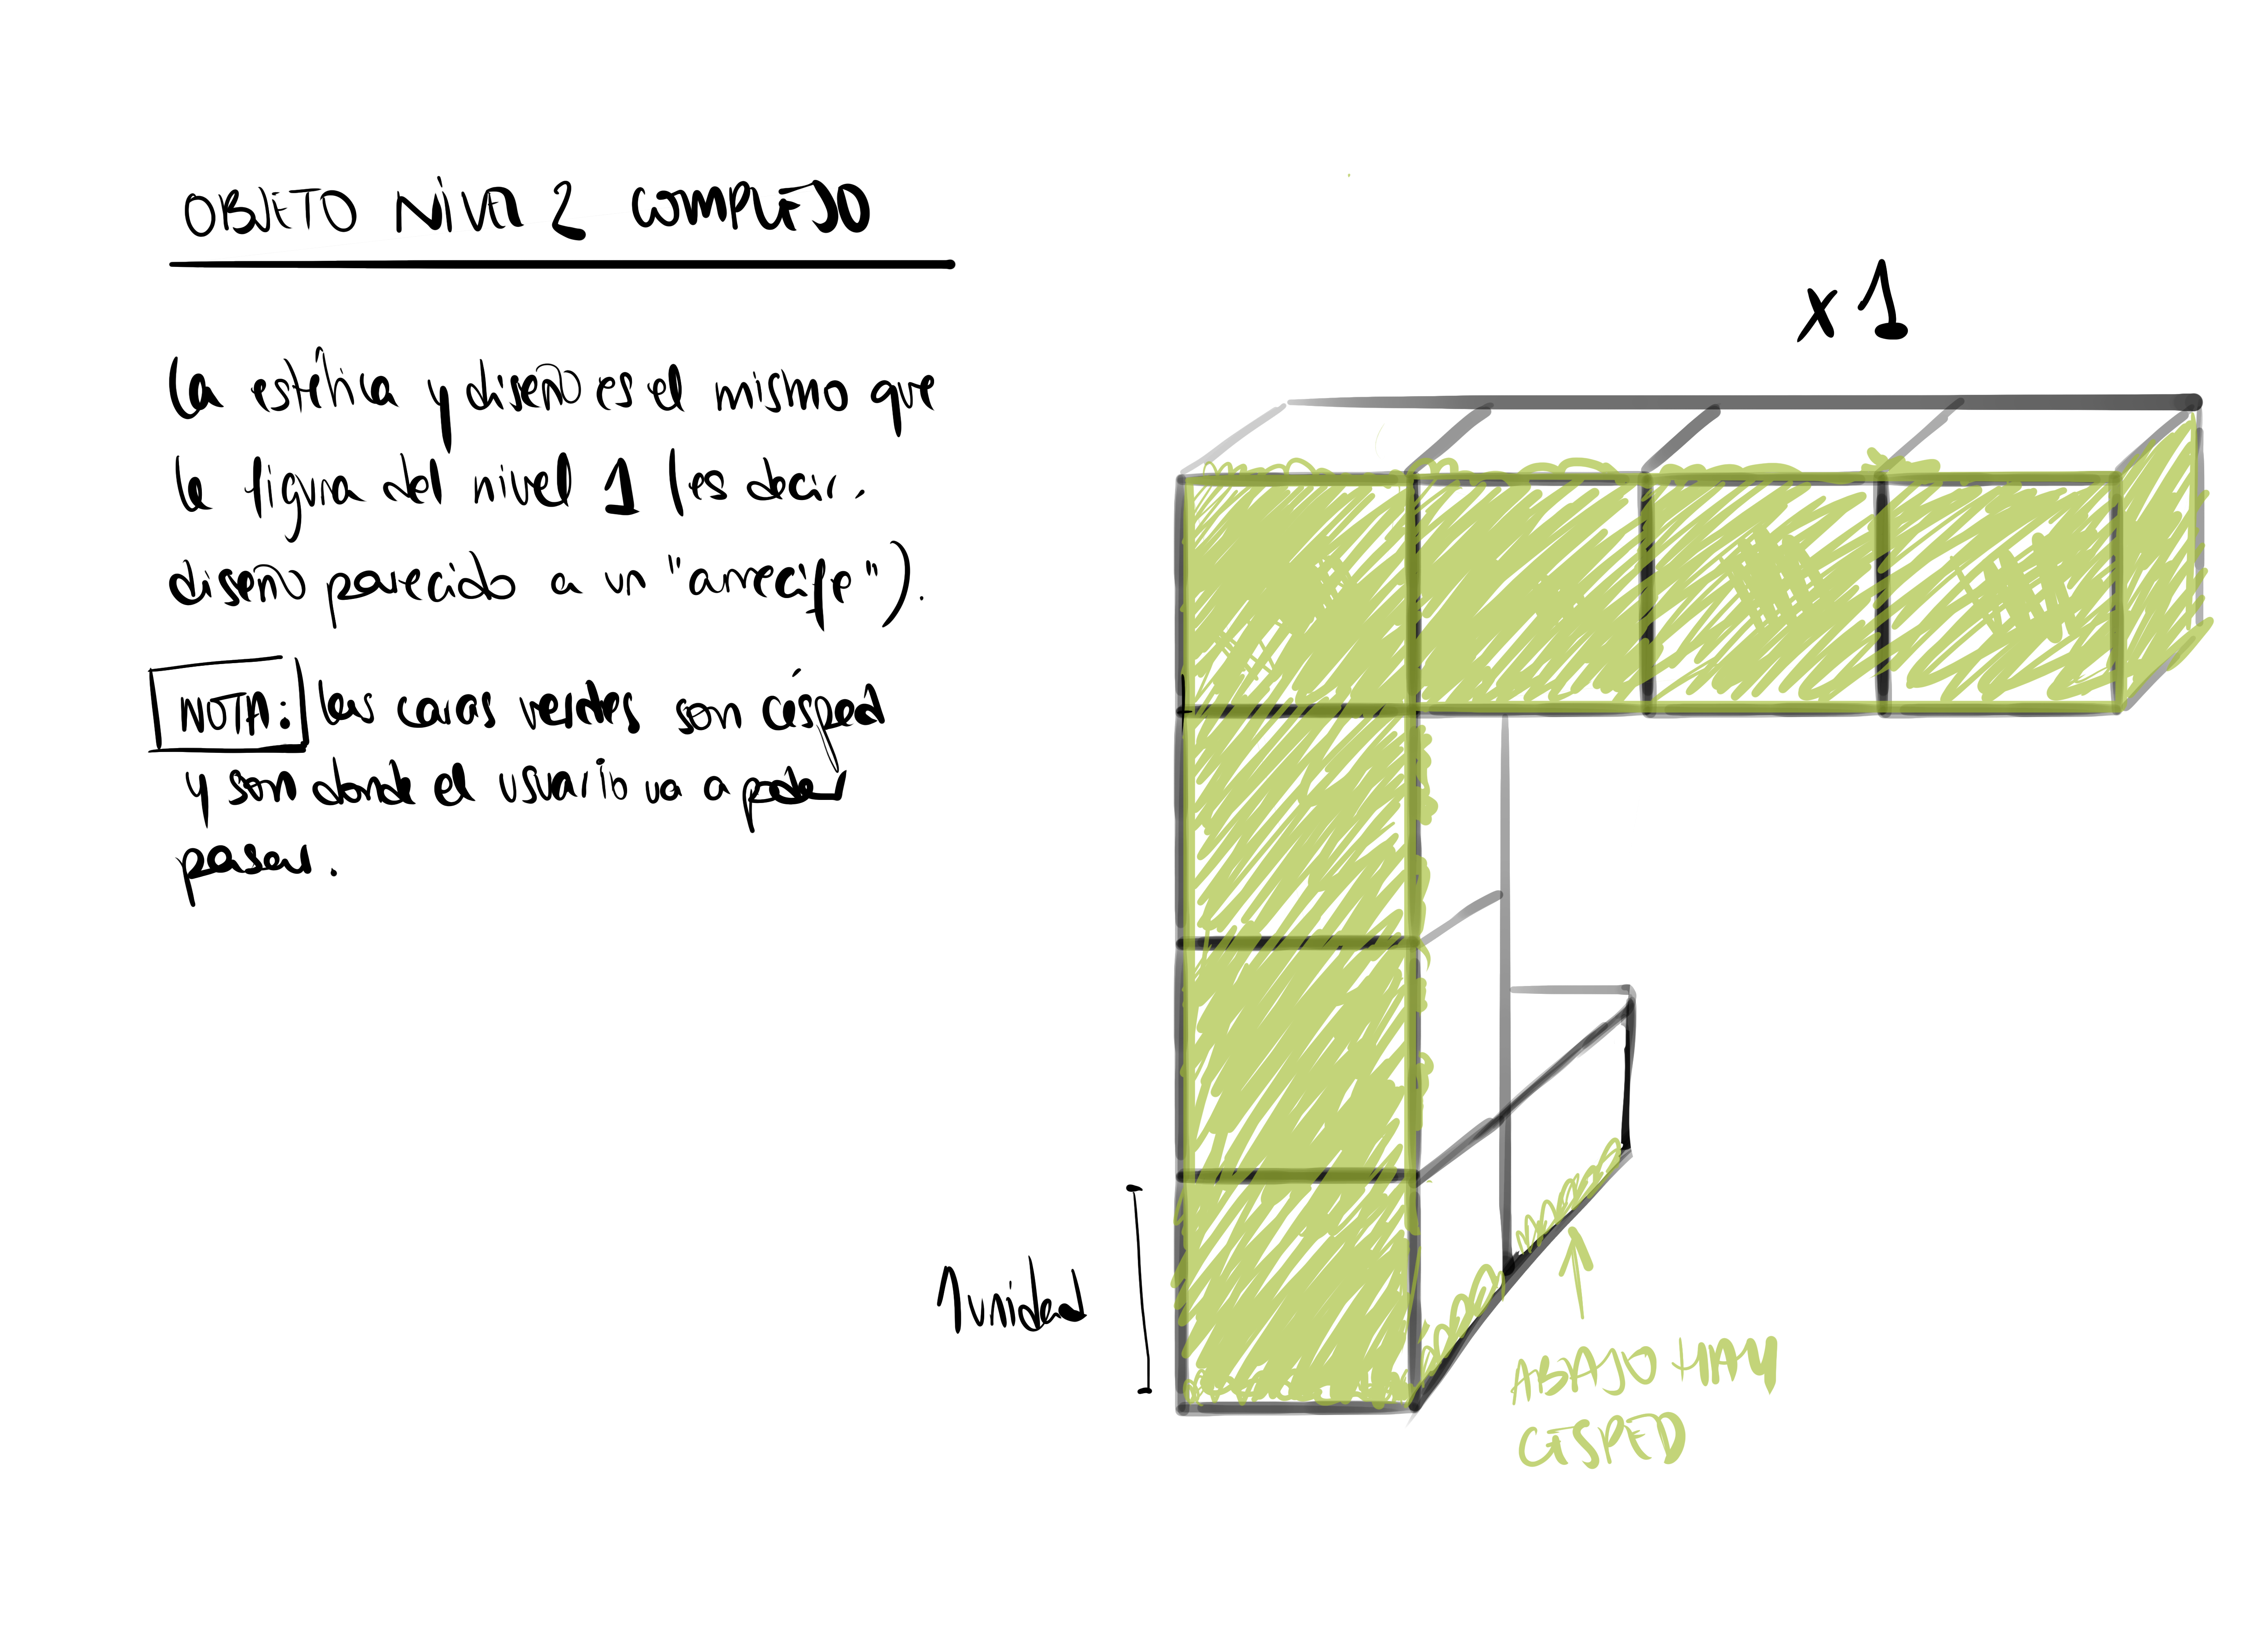 OBJETO NIVEL 2 COMPLEJO
La estética y diseño es el mismo que
la figura del nivel 1 (es decir,
diseño parecido a un "arrecife").
NOTA: Las caras verdes son césped
y son donde el usuario va a poder
pasar.
x1
1 unidad
ABAJO HAY
CÉSPED